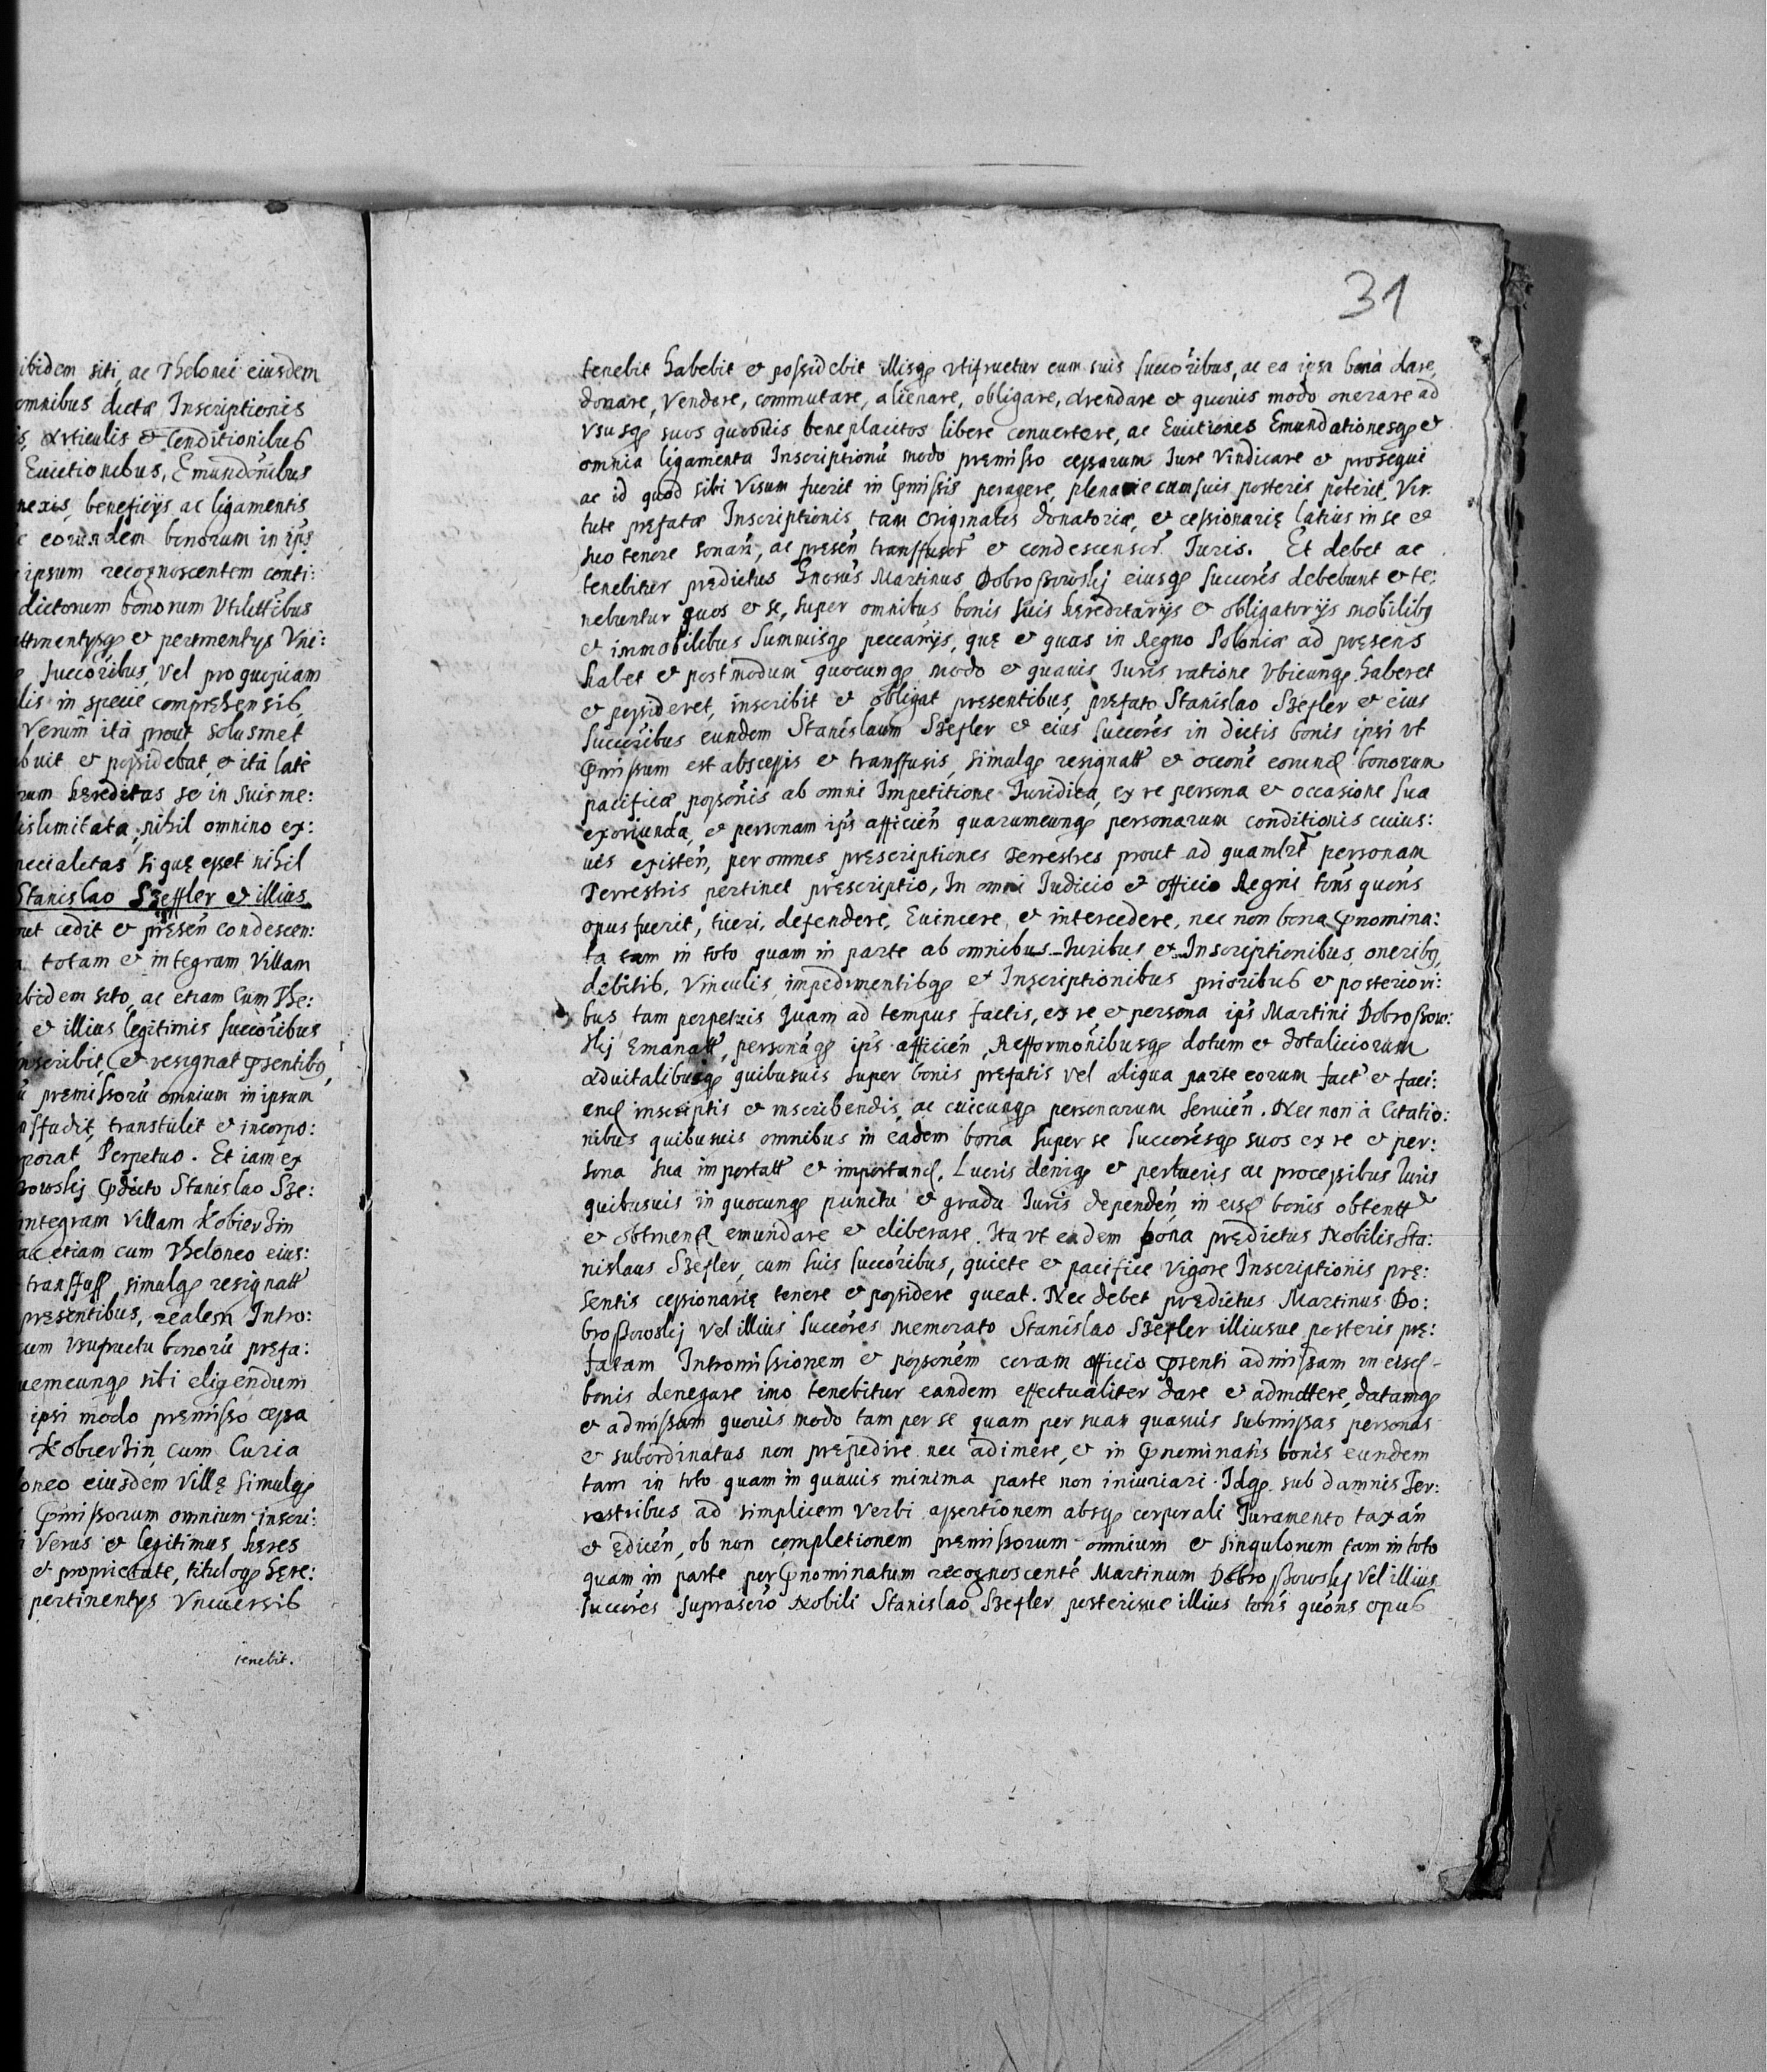 ibidem siti, ac Thelonei eiusdem
omnibus dictæ Inscriptionis
Articulis et Conditionibus
Euictionibus, Emundonibus
nexis, beneficijs ac ligamentis
eorundem bonorum in ips
ipsum recognoscentem conti:
dictorum bonorum Vtilittibus
attinentysq et pertinentys Vni:
succoribus, vel pro quopiam
lis in specie comprehensib,
Verum ita prout solusmet
buit et possidebat, et ita latè
rum hereditas se in suis me:
islimitata, nihil omnino ex:
pecialetas si quę esset nihil
Stanislao Szeffler et illius
cedit et presen condescen:
totam et integram Villam
ibidem sito, ac etiam Cum The:
et illius legitimis succoribus
nscribit, et resignat psentibq
premissorū omnium in ipsum
nsfudit, transtulit et incorpo:
porat Perpetuo. Et iam ex
sowskj pdicto Stanislao Sze:
integram Villam Kobierzin
ac etiam cum Theloneo eius:
transfuss simulq resignatt
presentibus, realem Intro:
cum Vsufructu bonorū prefa:
uemcunq sibi eligendum
ipsi modo premisso cessa
Kobierzin, cum Curia
loneo eiusdem Villę simulq
pmissorum omnium inscri:
Verus et legitimus heres
et proprietate, tituloq here:
pertinentys Vniuersis
tenebit.
31
tenebit habebit et possidebit illisq vtifruetur cum suis succoribus, ac ea ipsa bona dare,
donare, Vendere, commutare, alienare, obligare, Arendare et quouis modo onerare ad
Vsusq suos quosuis beneplacitos libere conuertere, ac Euictiones Emundationesq et
omnia ligamenta Inscriptionū modo premisso cessarum Iure Vindicare et prosequi
ac id quod sibi Visum fuerit in pmissis peragere, plenarie cum suis posteris poterit, Vir:
tute prefatæ Inscriptionis tam Originalis donatoriæ, et cessionarię latius in se et
suo tenore sonan, ac presen transfusor et condescensor Iuris. Et debet ac
tenebitur predictus Gnosus Martinus Dobrossowskj eiusq succores debebunt et te:
nebuntur quos et se, super omnibus bonis suis hereditarijs et obligatorijs mobilibq
et immobilibus summisq peccarijs, quę et quas in Regno Poloniæ ad presens
habet et postmodum quocunq modo et quauis Iuris ratione Vbicunq haberet
et possideret, inscribit et obligat presentibus, prefato Stanislao Szefler et eius
succoribus eundem Stanislaum Szefler et eius succores in dictis bonis ipsi vt
pmissum est abscessis et transfusis, simulq resignatt et occone eorund bonorum
pacificæ possonis ab omni Impetitione Iuridica, ex re persona et occasione sua
exoriunda, et personam ips afficien quarumcunq personarum conditionis cuius:
uis existen, per omnes prescriptiones Terrestres prout ad quamlzt personam
Terrestris pertinet prescriptio, In omni Iudicio et officio Regni tons quons
opus fuerit, tueri, defendere, Euincere, et intercedere, nec non bona pnomina:
ta tam in toto quam in parte ab omnibus Iuribus et Inscriptionibus, oneribq
debitis, Vinculis, impedimentisq et Inscriptionibus prioribus et posteriori:
bus tam perpetuis quam ad tempus factis, ex re et persona ips Martini Dobrossow:
skj Emanatt, personaq ips afficien, Refformonibusq dotum et dotaliciorum
Aduitalibusq quibusuis super bonis prefatis vel aliqua parte eorum fact et faci:
end inscriptis et inscribendis, ac cuicunq personarum seruien. Nec non à Citatio:
nibus quibusuis omnibus in eadem bona super se succoresq suos ex re et per:
sona sua importatt et importand. Lucris deniq et perlucris ac processibus Iuris
quibusuis in quocunq punctu et gradu Iuris dependen in eisd bonis obtentt
et obtinend emundare et eliberare. Ita vt eadem bona predictus Nobilis Sta:
nislaus Szefler, cum suis succoribus, quiete et pacifice vigore Inscriptionis prę:
sentis cessionarię tenere et possidere queat. Nec debet predictus Martinus Do:
brossowskj vel illius succores memorato Stanislao Szefler illiusue posteris prę:
fatam Intromissionem et possonem coram officio psenti admissam in eisd
bonis denegare imo tenebitur eandem effectualiter dare et admittere, datamq
et admissam quouis modo tam per se quam per suas quasuis submissas personas
et subordinatas non prepedire nec adimere, et in pnominatis bonis eundem
tam in toto quam in quauis minima parte non iniuriari. Idq sub damnis Ter:
restribus ad simplicem verbi assertionem absq corporali Iuramento taxan
et edicen, ob non completionem premissorum omnium et singulorum tam in toto
quam in parte per pnominatum recognoscente Martinum Dobrossowskj vel illius
succores suprascro Nobili Stanislao Szefler posterisue illius tons quons opus